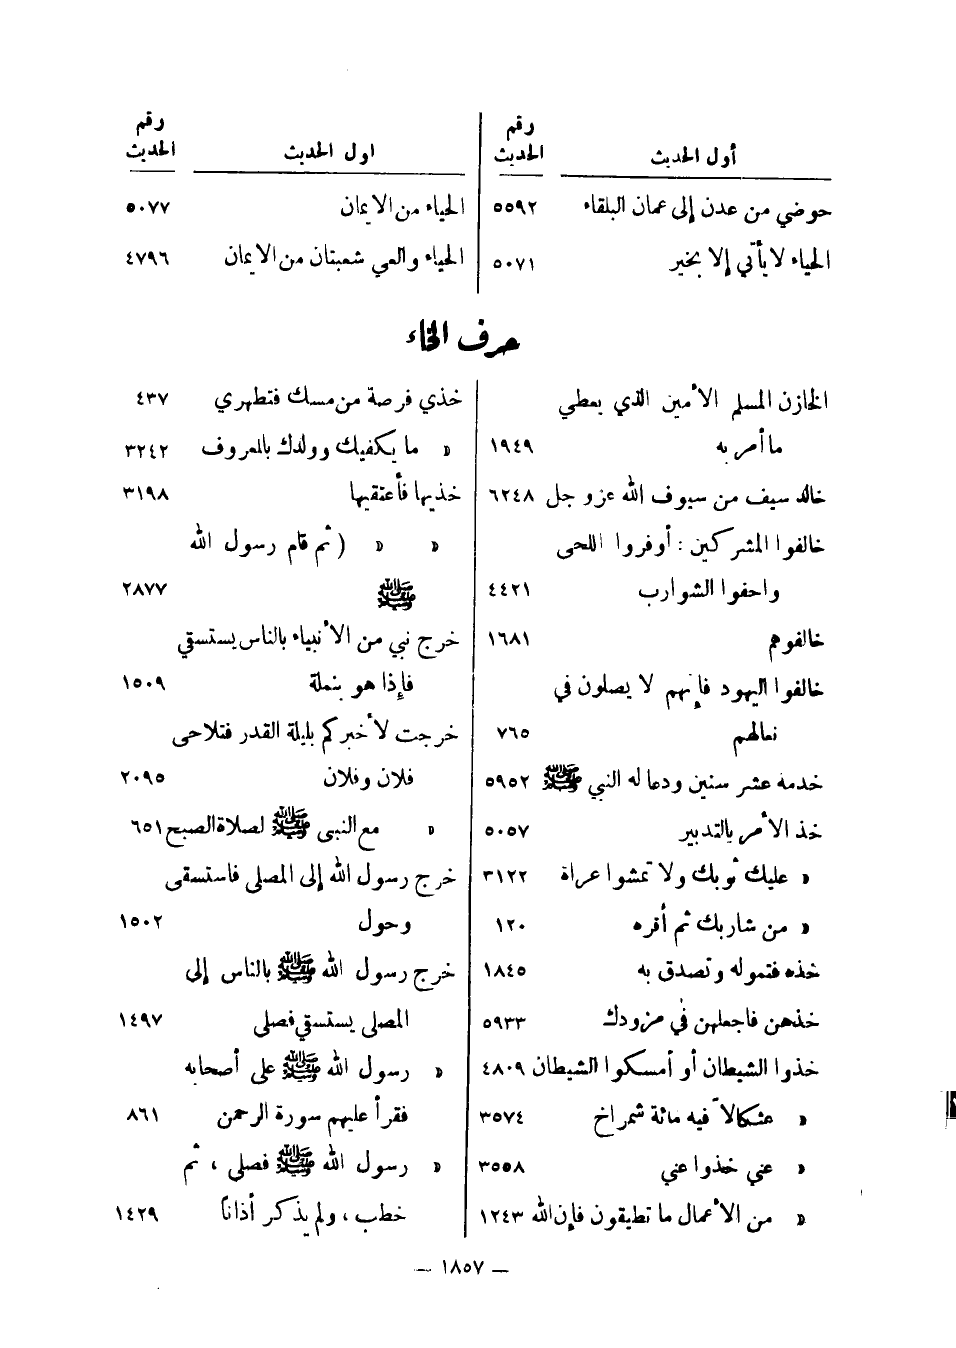 أول الحديث
رقم
الحديث
حوضي من عدن إلى عمان البلقاء ٥٥٩٢
الحياء لا يأتي إلا بخير ٥٠٧١
اول الحديث
رقم
الحديث
الحياء من الايمان ٥٠٧٧
الحياء والعي شعبتان من الايمان ٤٧٩٦
حرف الخاء
الخازن المسلم الأمين الذي يعطي
ما أمر به ١٩٤٩
خالد سيف من سيوف الله عزوجل ٦٢٤٨
خالفوا المشركين : أوفروا اللحى
واحفوا الشوارب ٤٤٢١
خالفوهم ١٦٨١
خالفوا اليهود فإنهم لا يصلون في
نعالهم ٧٦٥
خدمه عشر سنين ودعا له النبي ﷺ ٥٩٥٢
خذ الأمر بالتدبير ٥٠٥٧
« عليك ثوبك ولا تمشوا عراة ٣١٢٢
« من شاربك ثم أقره ١٢٠
خذه فتموله وتصدق به ١٨٤٥
خذهن فاجعلهن في مزودك ٥٩٣٣
خذوا الشيطان أو أمسكوا الشيطان ٤٨٠٩
« عثكالاً فيه مائة شمراخ ٣٥٧٤
« عني خذوا عني ٣٥٥٨
« من الأعمال ما تطيقون فإن الله ١٢٤٣
خذي فرصة من مسك فتطهري ٤٣٧
« ما يكفيك وولدك بالمعروف ٣٢٤٢
خذيها فأعتقيها ٣١٩٨
« « (ثم قام رسول الله
ﷺ ٢٨٧٧
خرج نبي من الأنبياء بالناس يستسقي
فإذا هو بنملة ١٥٠٩
خرجت لأخبركم بليلة القدر فتلاحى
فلان وفلان ٢٠٩٥
« مع النبي ﷺ لصلاة الصبح ٦٥١
خرج رسول الله إلى المصلى فاستسقى
وحول ١٥٠٢
خرج رسول الله ﷺ بالناس إلى
المصلى يستسقي فصلى ١٤٩٧
« رسول الله ﷺ على أصحابه
فقرأ عليهم سورة الرحمن ٨٦١
« رسول الله ﷺ فصلى ، ثم
خطب ، ولم يذكر أذاناً ١٤٢٩
— ١٨٥٧ —